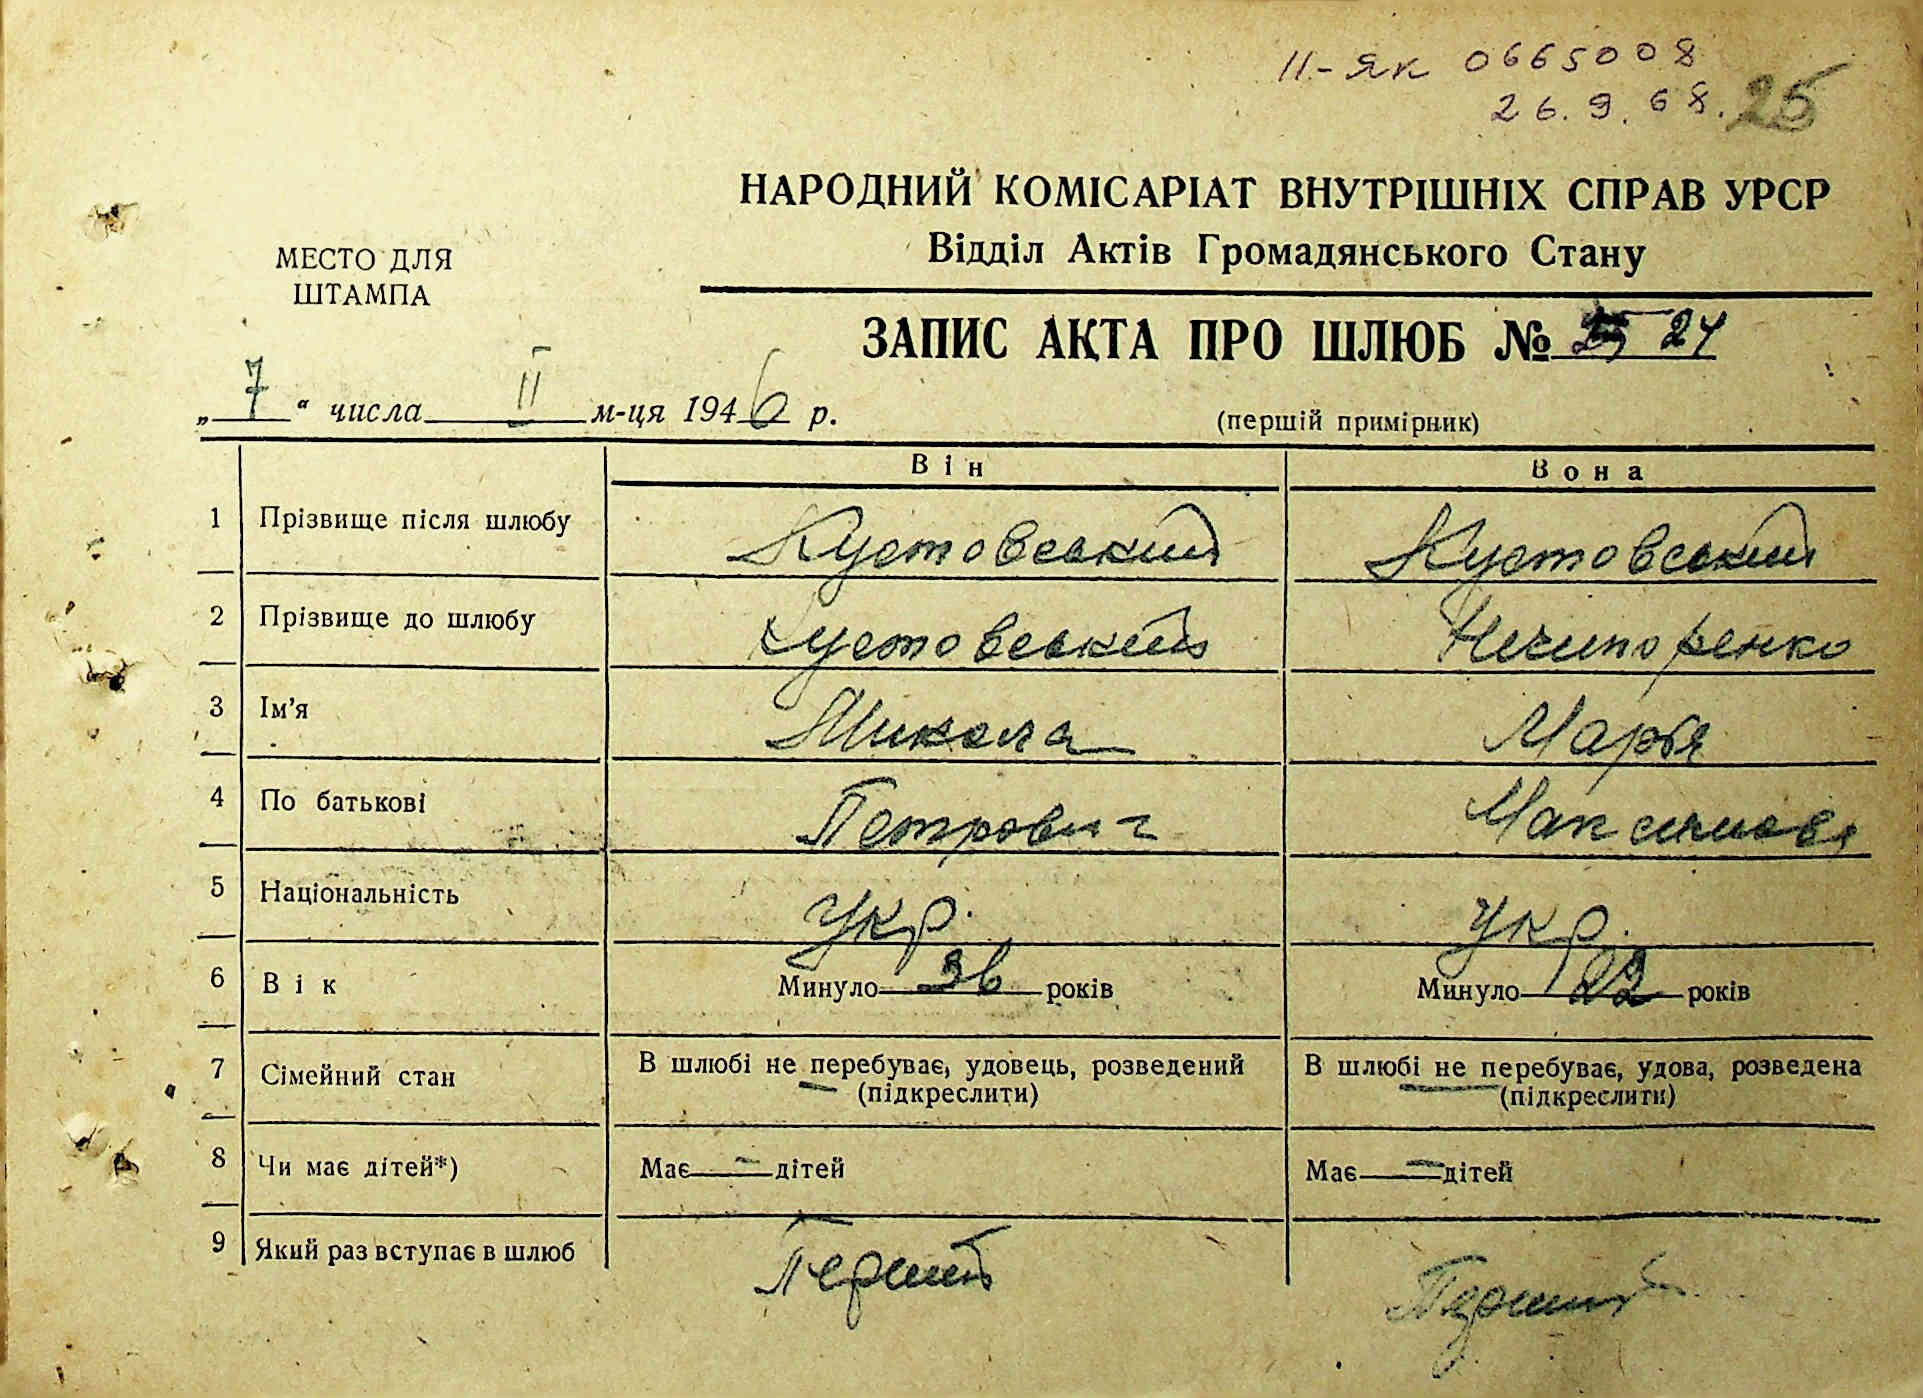 II-ЯК 0665008
26.9.68. 25
НАРОДНИЙ КОМІСАРІАТ ВНУТРІШНІХ СПРАВ УРСР
Відділ Актів Громадянського Стану
МЕСТО ДЛЯ
ШТАМПА
ЗАПИС АКТА ПРО ШЛЮБ № 24
„7“ числа II м-ця 1946 р.
(першій примірник)
Він Вона
1 Прізвище після шлюбу Кустовський Кустовський
2 Прізвище до шлюбу Кустовський Нечипоренко
3 Ім'я Микола Марія
4 По батькові Петрович Максимовн
5 Національність Укр. Укр.
6 Вік Минуло 36 років Минуло 22 років
7 Сімейний стан В шлюбі не перебуває, удовець, розведений В шлюбі не перебуває, удова, розведена
(підкреслити) (підкреслити)
8 Чи має дітей*) Має — дітей Має — дітей
9 Який раз вступає в шлюб Перший Перший